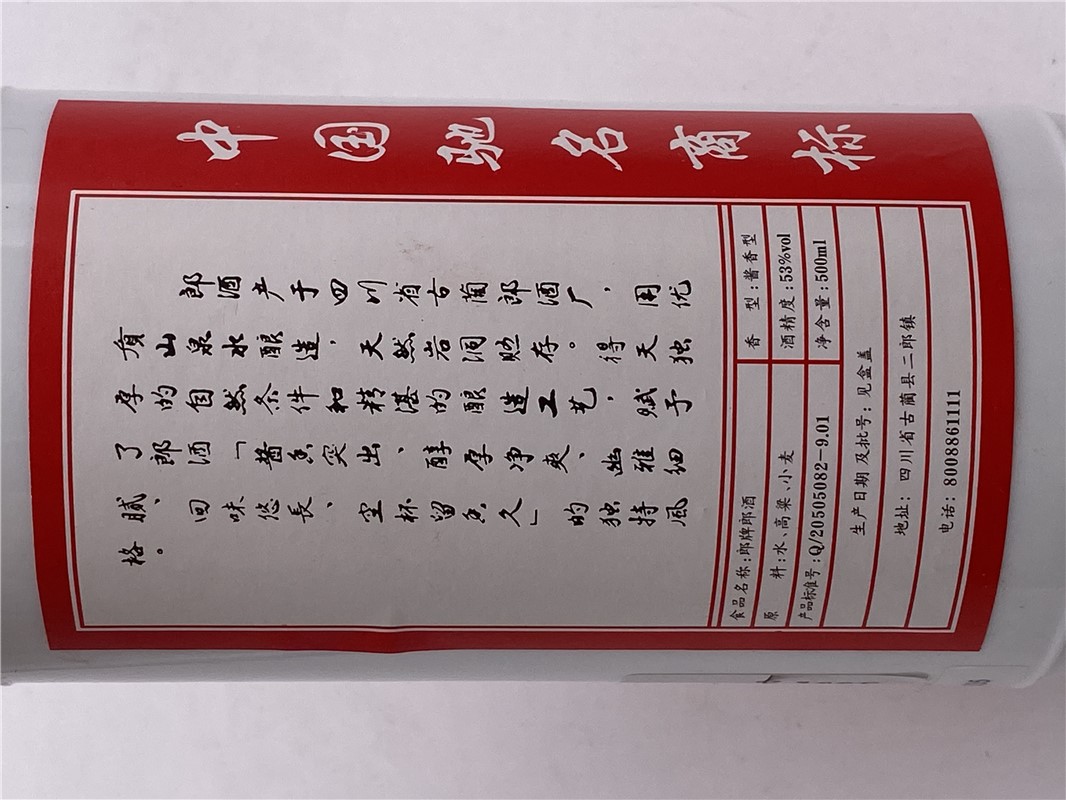 中国驰名商标
郎酒产于四川省古蔺郎酒厂，用优
质山泉水酿造，天然岩洞贮存。得天独
厚的自然条件和精湛的酿造工艺，赋予
了郎酒「酱香突出、醇厚净爽、幽雅细
腻、回味悠長、空杯留香久」的独特风
格。
食品名称:郎牌郎酒 香型:酱香型
原料:水、高粱、小麦 酒精度:53%vol
产品标准号:Q/20505082-9.01 净含量:500ml
生产日期及批号:见盒盖
地址:四川省古蔺县二郎镇
电话:8008861111